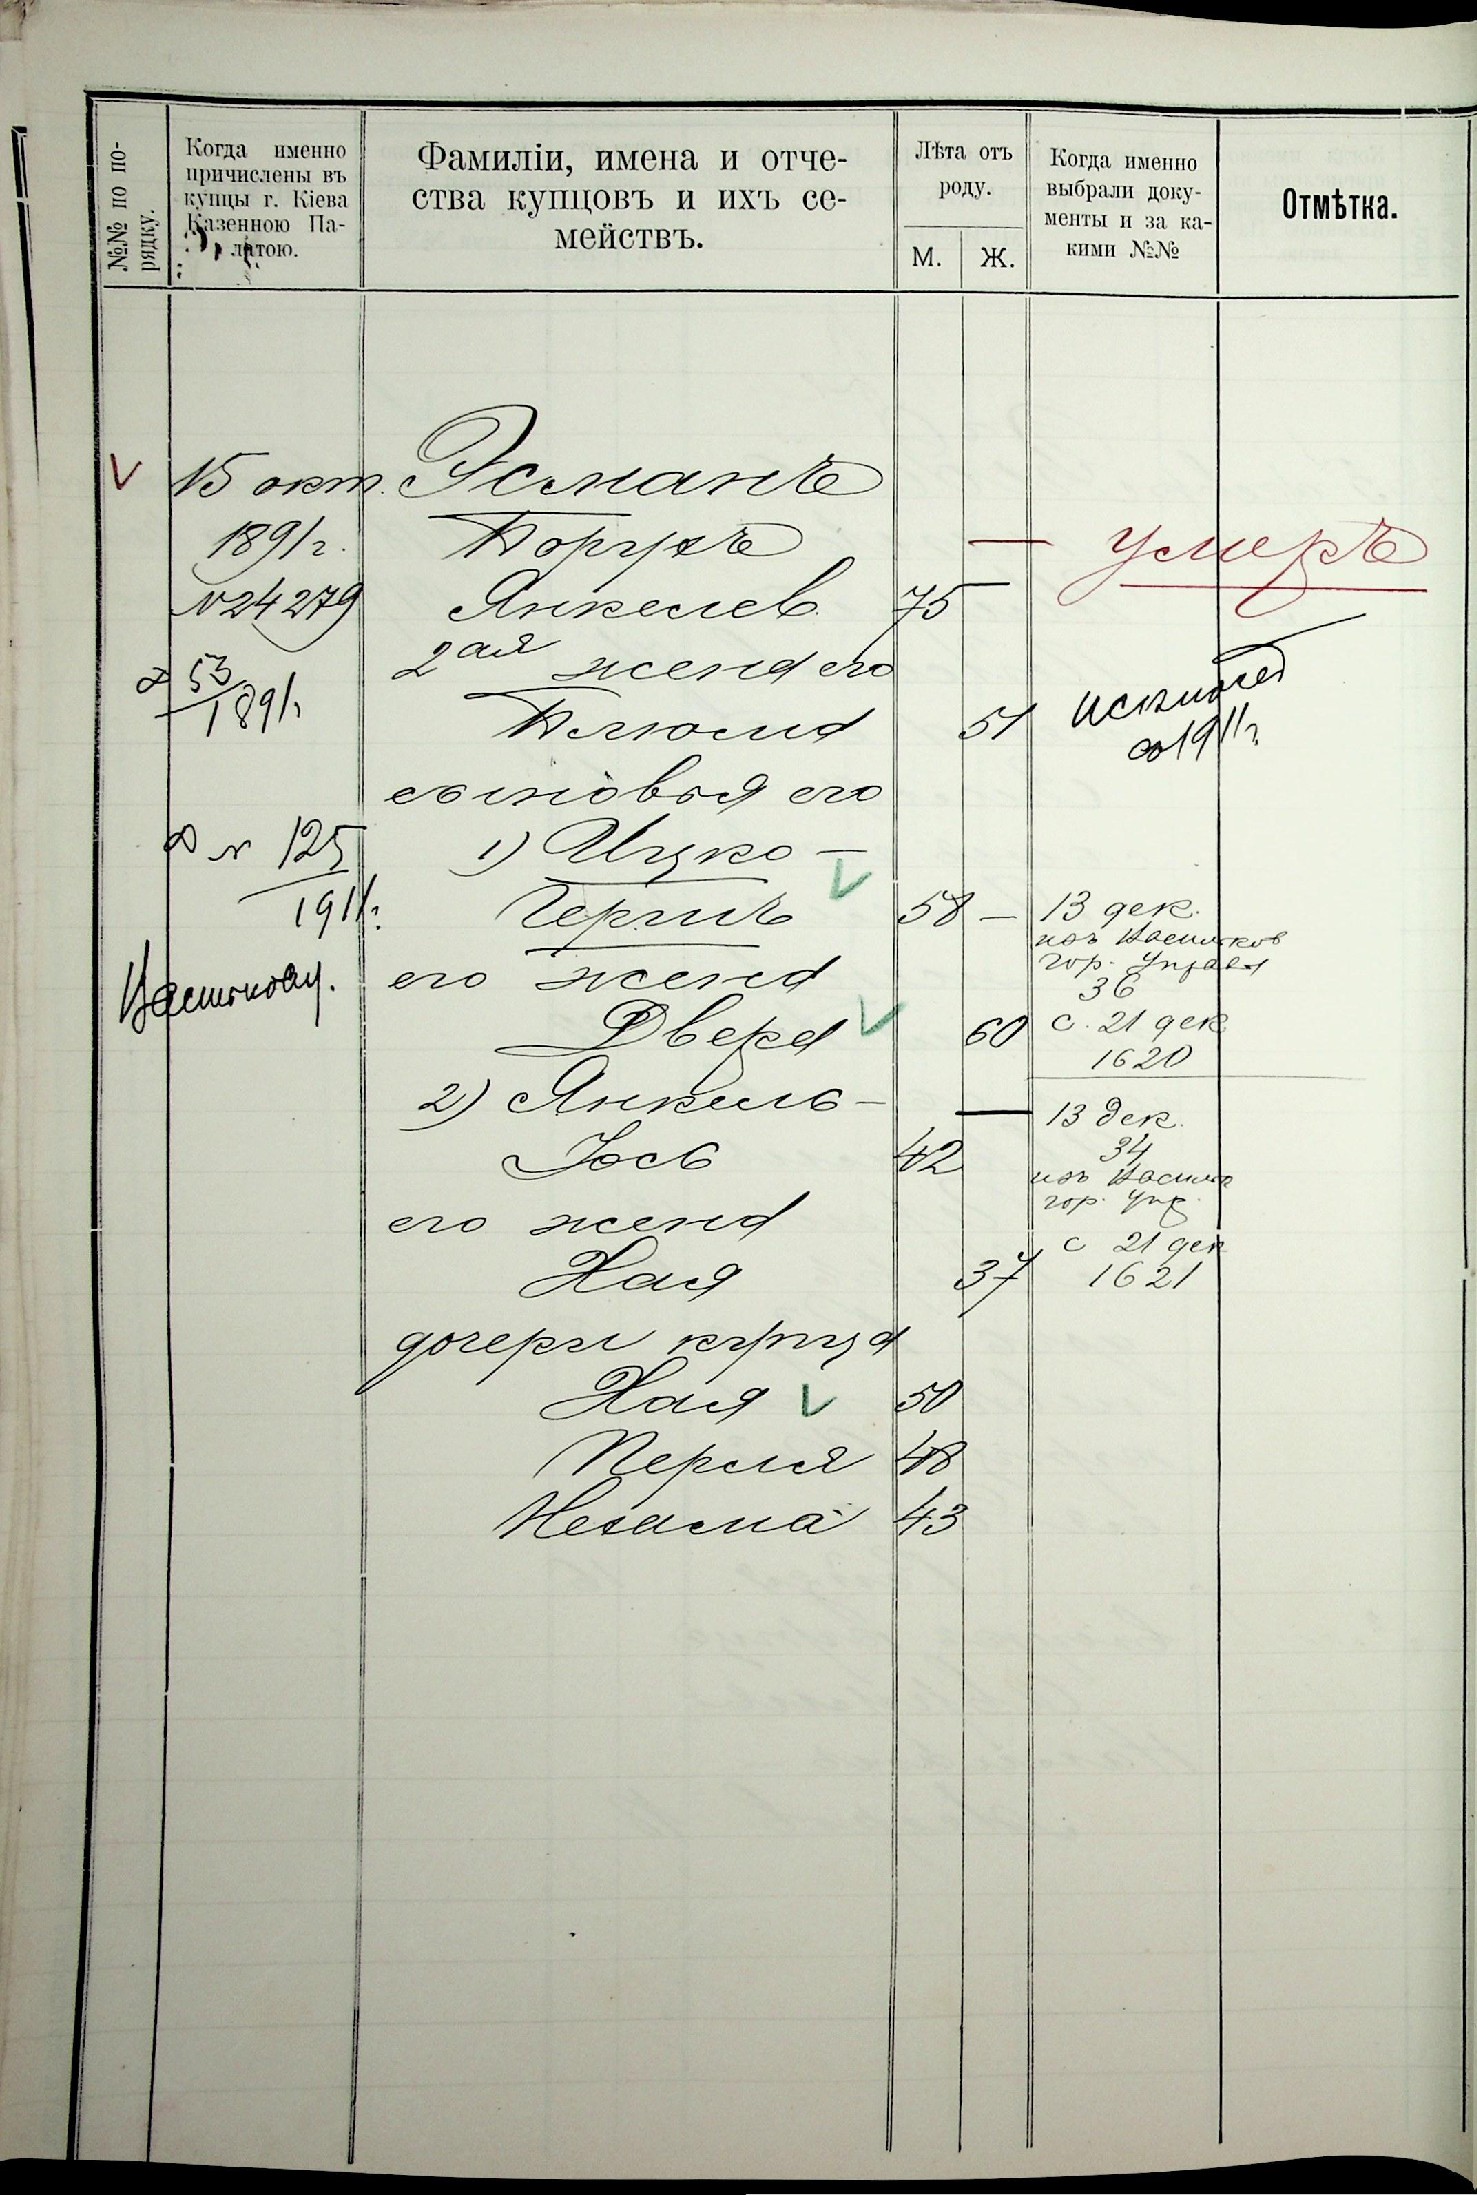 №№ по по-
рядку.
Когда именно
причислены въ
купцы г. Кіева
Казенною Па-
латою.
Фамиліи, имена и отче-
ства купцовъ и ихъ се-
мействъ.
Лѣта отъ
роду.
М. Ж.
Когда именно
выбрали доку-
менты и за ка-
кими №№
Отмѣтка.
15 окт. Эсманъ
1891 г. Борухъ — умеръ
№ 24279 Янкелев. 75 —
53
1891 г.
2ая жена его
Блюма 51
1911 г.
сыновья его
125
1911 г.
1) Ицко —
Гершъ 58 — 13 дек.
изъ Васильков
гор. Управы
36
его жена
Двера 60 с. 21 дек
1620
2) Янкель — — 13 дек.
Іось 42 34
изъ Васильк
гор. Упр.
его жена с 21 дек
Хая 37 1621
дочери купца
Хая 50
Перля 48
Нехама 43